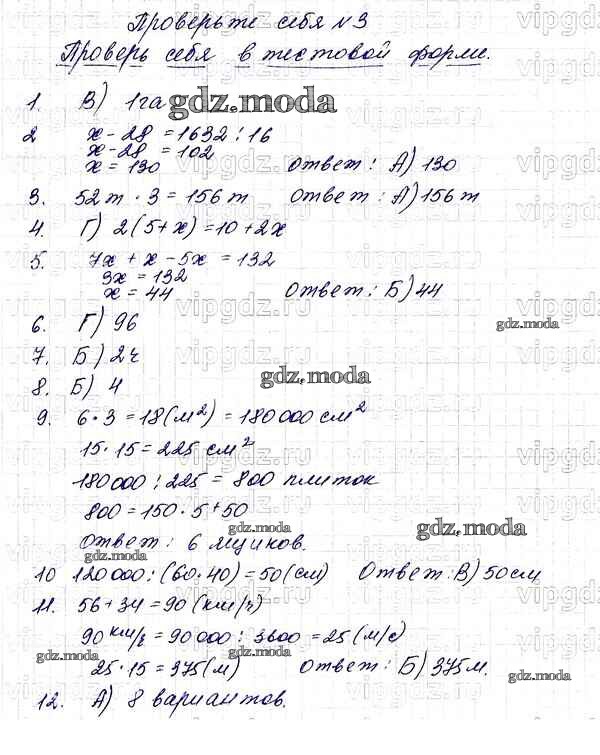 Проверьте себя №3
Проверь себя в тестовой форме.
1. В) 1га
2 x - 28 = 1632 : 16
x - 28 = 102
x = 130 Ответ: А) 130
3. 52т · 3 = 156 т Ответ: А) 156 т
4. Г) 2(5+x) = 10 + 2x
5. 7x + x - 5x = 132
3x = 132
x = 44 Ответ: Б) 44
6. Г) 96
7. Б) 24
8. Б) 4
9. 6 · 3 = 18 (м²) = 180 000 см²
15 · 15 = 225 см²
180 000 : 225 = 800 плиток
800 = 150 · 5 + 50
Ответ: 6 ящиков.
10 120 000 : (60 · 40) = 50 (см) Ответ: В) 50 см
11. 56 + 34 = 90 (км/ч)
90 км/ч = 90 000 : 3600 = 25 (м/с)
25 · 15 = 375 (м) Ответ: Б) 375 м.
12. А) 8 вариантов.
gdz.moda
gdz.moda
gdz.moda
gdz.moda
gdz.moda
gdz.moda
gdz.moda
gdz.moda
gdz.moda
vipgdz.ru